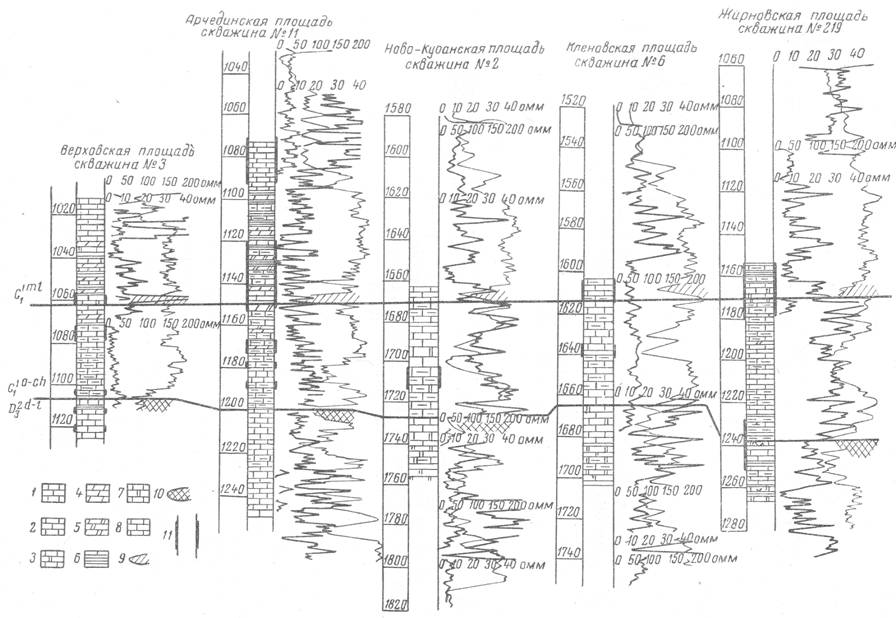 Арчединская площадь
скважина №11
0 50 100 150 200
0 10 20 30 40
1040
1060
1080
1100
1120
1140
1160
1180
1200
1220
1240
Верховская площадь
скважина №3
0 50 100 150 200 омм
0 10 20 30 40 омм
1020
1040
1060
1080
1100
1120
0 50 100 150 200 омм
Ново-Кубанская площадь
скважина №2
0 10 20 30 40 омм
0 50 100 150 200 омм
1580
1600
1620
1640
1660
1680
1700
1720
1740
1760
1780
1800
1820
0 10 20 30 40 омм
0 50 100 150 200 омм
0 10 20 30 40 омм
0 50 100 150 200 омм
0 10 20 30 40 омм
Кленовская площадь
скважина №6
0 10 20 30 40 омм
0 50 100 150 200 омм
1520
1540
1560
1580
1600
1620
1640
1660
1680
1700
1720
1740
0 50 100 150 200
0 10 20 30 40 омм
0 50 100 150 200
0 10 20 30 40 омм
0 50 100 150 200 омм
Жирновская площадь
скважина №219
0 10 20 30 40
0 50 100 150 200 омм
0 10 20 30 40 омм
1060
1080
1100
1120
1140
1160
1180
1200
1220
1240
1260
1280
1 4 7 10
2 5 8 11
3 6 9